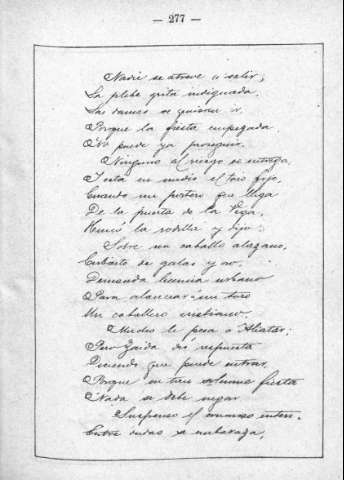 — 277 —
Nadie se atreve á salir;
La plebe grita indignada,
Las damas se quieren ir,
Porque la fiesta empezada
No puede ya proseguir.
Ninguno al riesgo se entrega,
Y está en medio el toro fijo,
Cuando un portero que llega
De la puerta de la Vega,
Hincó la rodilla y dijo:
Sobre un caballo alazano,
Cubierto de galas y oro,
Demanda licencia urbano
Para alancear á un toro
Un caballero cristiano.
Mucho le pesa á Aliatar;
Pero Zaida dió respuesta
Diciendo que puede entrar,
Porque en tan solemne fiesta
Nada se debe negar.
Suspenso el concurso entero
Entre dudas se embaraza,